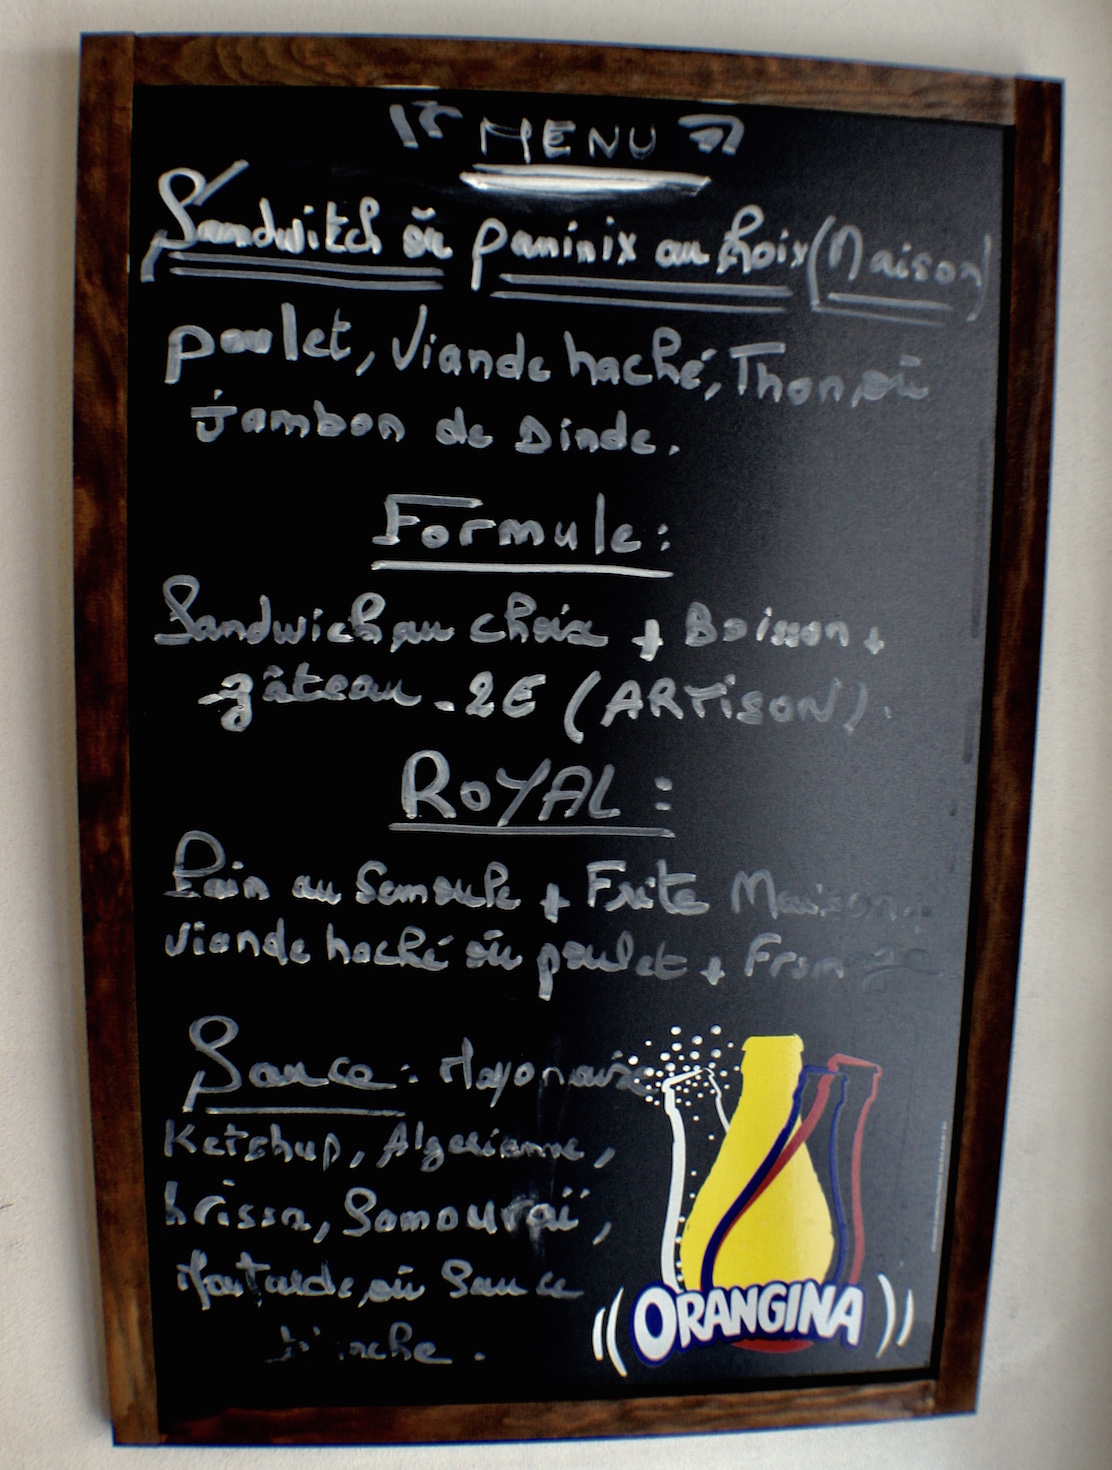 MENU
Sandwitch où paninix au hoix (Maison)
poulet, Viande haché, Thon, où
jambon de Dinde.
Formule:
Sandwich au choix + Boisson +
gâteau - 2E (ARTISON).
ROYAL:
Pain au Semoule + Frite Maison +
viande haché où poulet + From
Sauce: Mayonaise
Ketshup, Algerianne,
hrissa, Somouraï,
Moutarde, où Sauce
ORANGINA